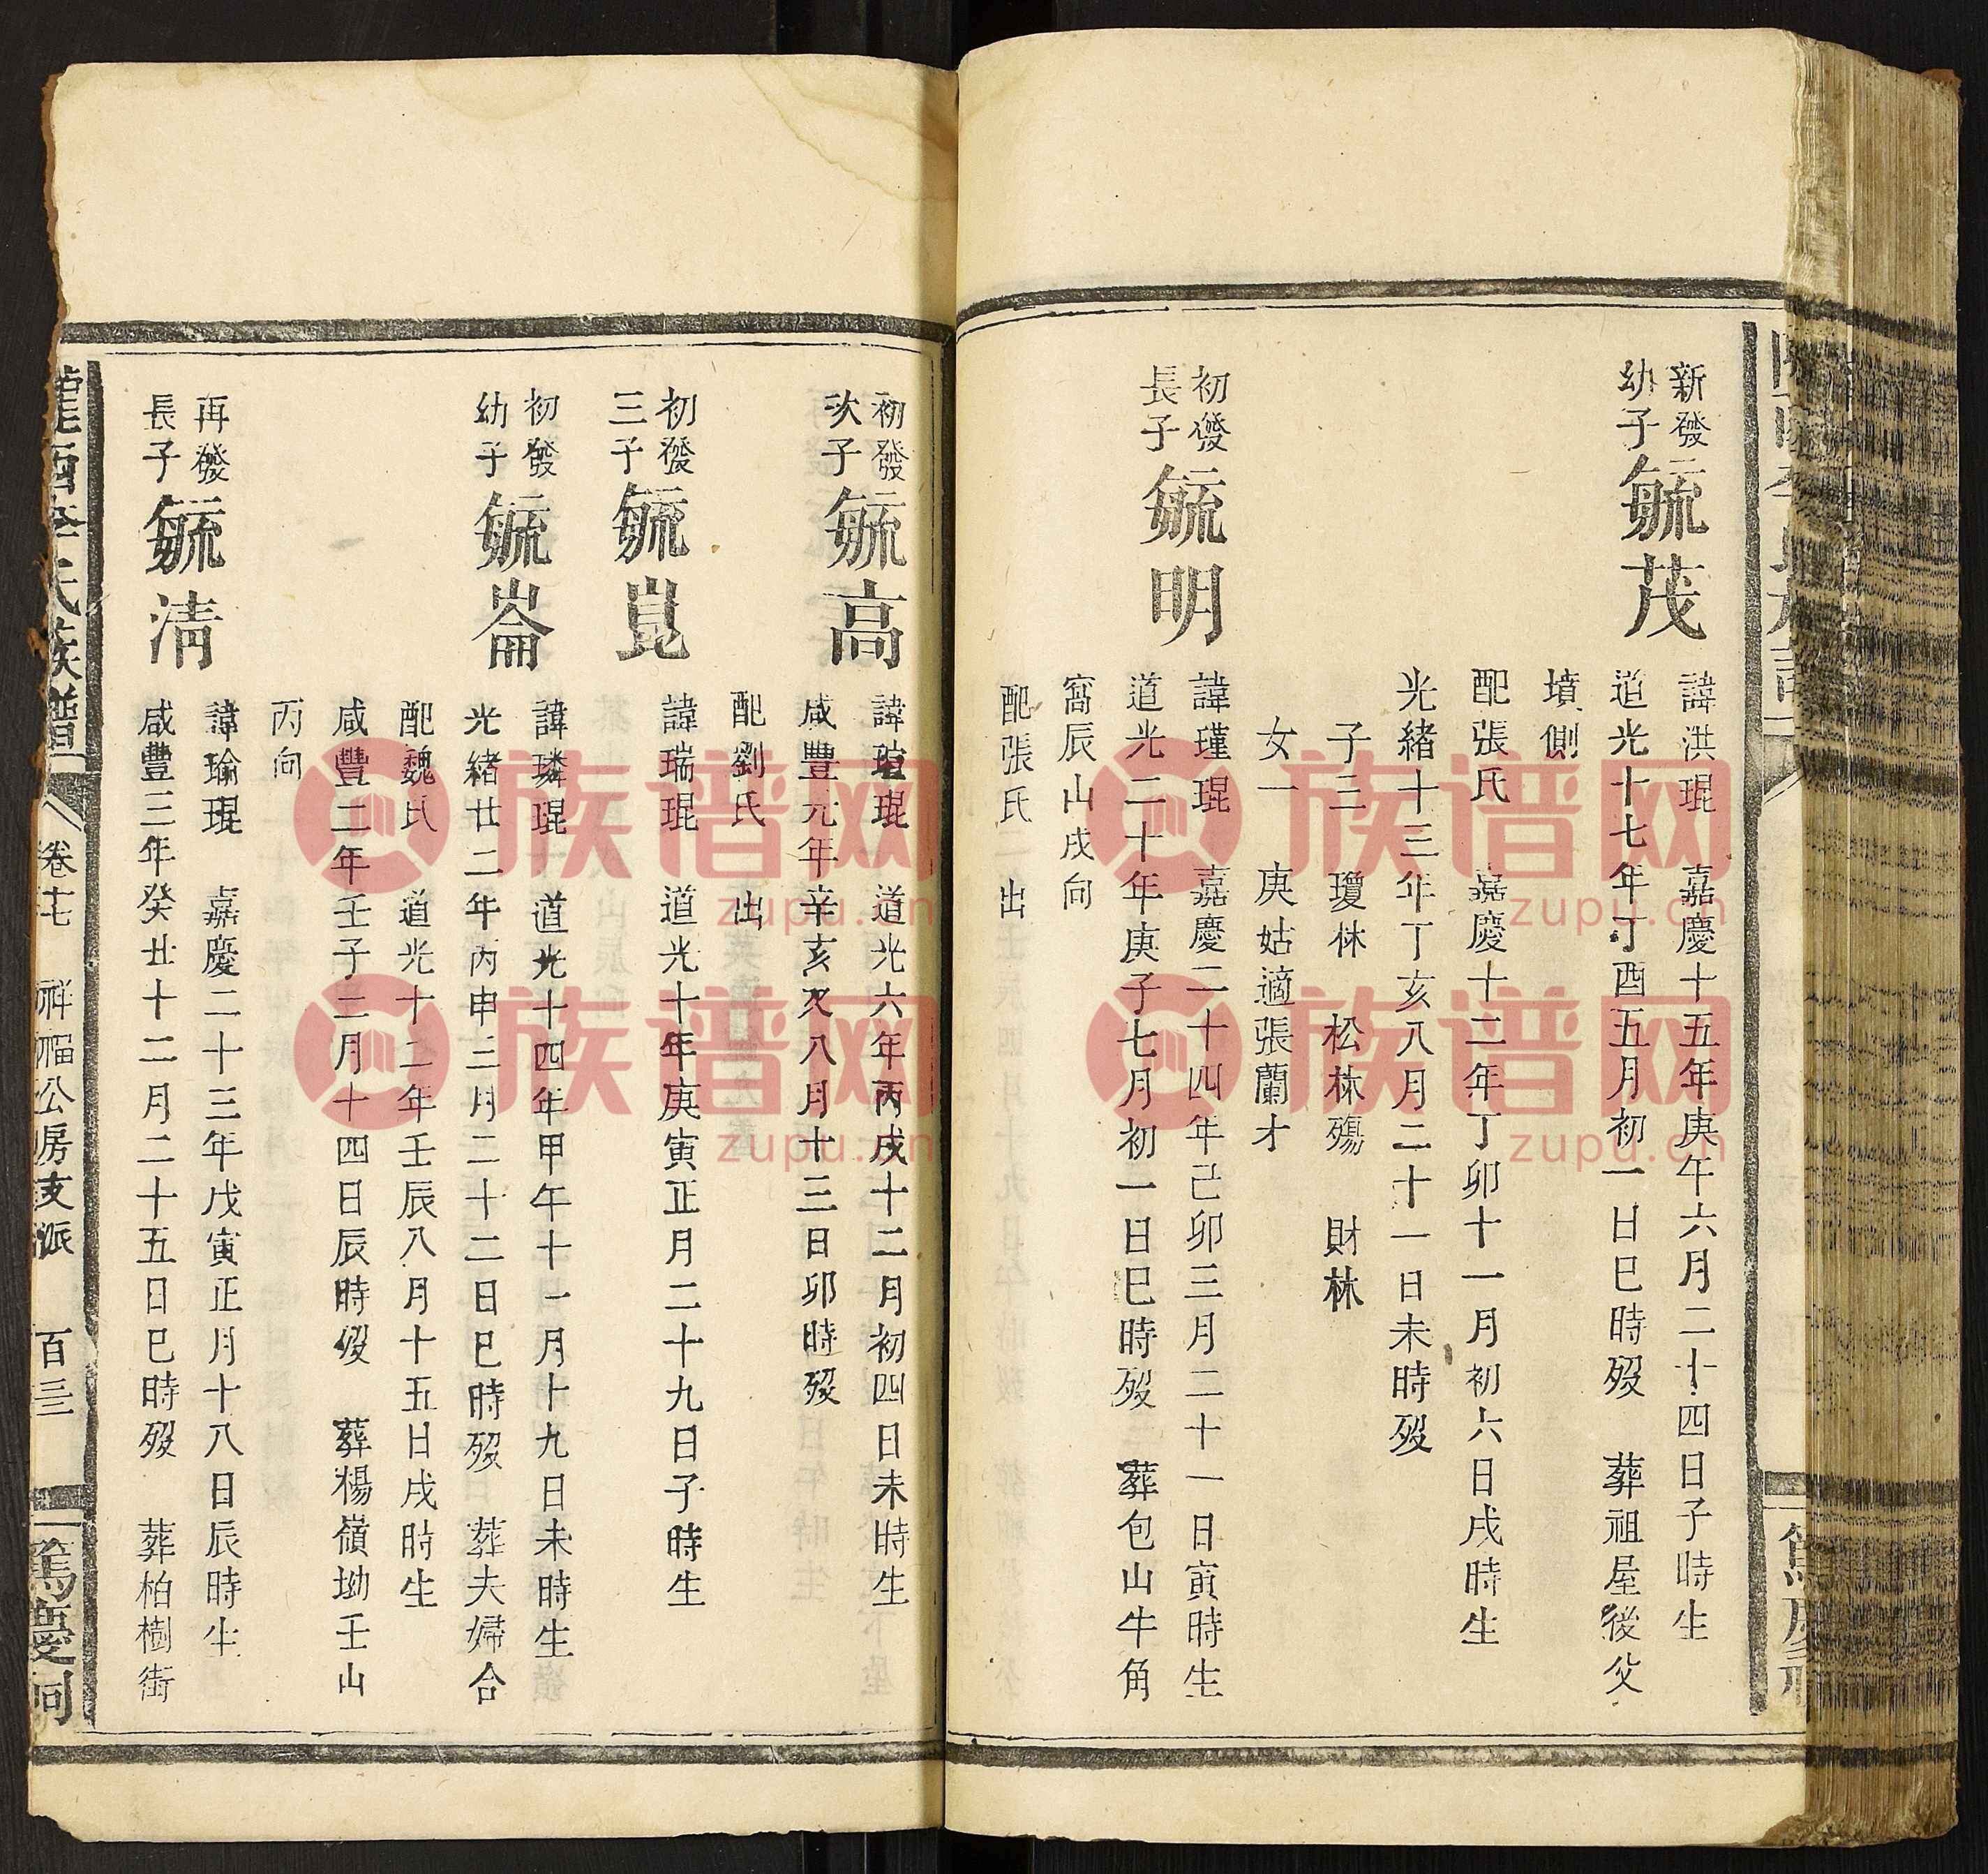 新發
幼子
毓茂
諱洪琨 嘉慶十五年庚午六月二十四日子時生
道光十七年丁酉五月初一日巳時歿 葬祖屋後父
墳側
配張氏 嘉慶十二年丁卯十一月初六日戌時生
光緒十三年丁亥八月二十一日未時歿
子三 瓊林 松林殤 財林
女一 庚姑適張蘭才
初發
長子
毓明
諱瑾琨 嘉慶二十四年己卯三月二十一日寅時生
道光二十年庚子七月初一日巳時歿 葬包山牛角
窩辰山戌向
配張氏二出
初發
次子
毓高
諱瑄琨 道光六年丙戌十二月初四日未時生
咸豐元年辛亥又八月十三日卯時歿
配劉氏 出
初發
三子
毓崑
諱瑞琨 道光十年庚寅正月二十九日子時生
初發
幼子
毓崙
諱璘琨 道光十四年甲午十一月十九日未時生
光緒廿二年丙申三月二十二日巳時歿 葬夫婦合
配魏氏 道光十二年壬辰八月十五日戌時生
咸豐二年壬子二月十四日辰時歿 葬楊嶺坳壬山
丙向
再發
長子
毓清
諱瑜琨 嘉慶二十三年戊寅正月十八日辰時生
咸豐三年癸丑十二月二十五日巳時歿 葬柏樹街
隴西李氏族譜 卷十七 祥福公房支派 百三 篤慶祠
族谱网
zupu.cn
族谱网
zupu.cn
族谱网
zupu.cn
族谱网
zupu.cn